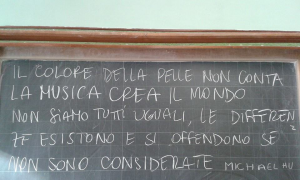 IL COLORE DELLA PELLE NON CONTA
LA MUSICA CREA IL MONDO
NON SIAMO TUTTI UGUALI, LE DIFFEREN
ZE ESISTONO E SI OFFENDONO SE
NON SONO CONSIDERATE MICHAEL